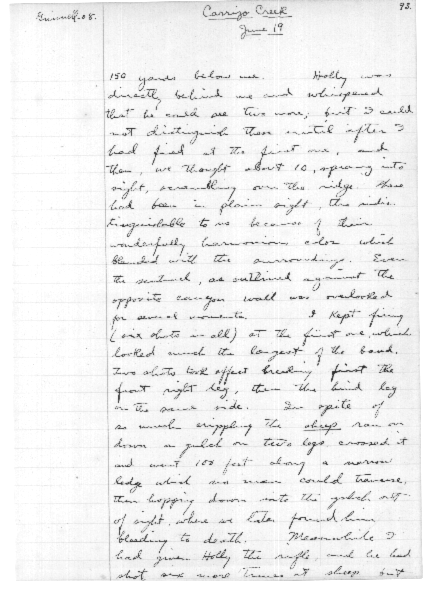 Grinnell-08.
Carrizo Creek
93.
June 19
150 yards below me. Holly was
directly behind me and whispered
that he could see two more; but I could
not distinguish them until after I
had fired at the first one, and
then, we thought about 10, sprang into
sight, scrambling over the ridge. These
had been in plain sight, tho indis-
tinguishable to us because of their
wonderfully harmonious color which
blended with the surroundings. Even
the sentinel, as outlined against the
opposite canyon wall was overlooked
for several moments. I kept firing
(six shots in all) at the first one, which
looked much the largest of the band.
Two shots took effect breaking first the
front right leg, then the hind leg
on the same side. In spite of
so much crippling the sheep ran on
down a gulch on two legs, crossed it
and went 100 feet along a narrow
ledge which no man could traverse,
then hopping down into the gulch out-
of sight, where we later found him
bleeding to death. Meanwhile I
had given Holly the rifle, and he had
shot six more times at sheep but